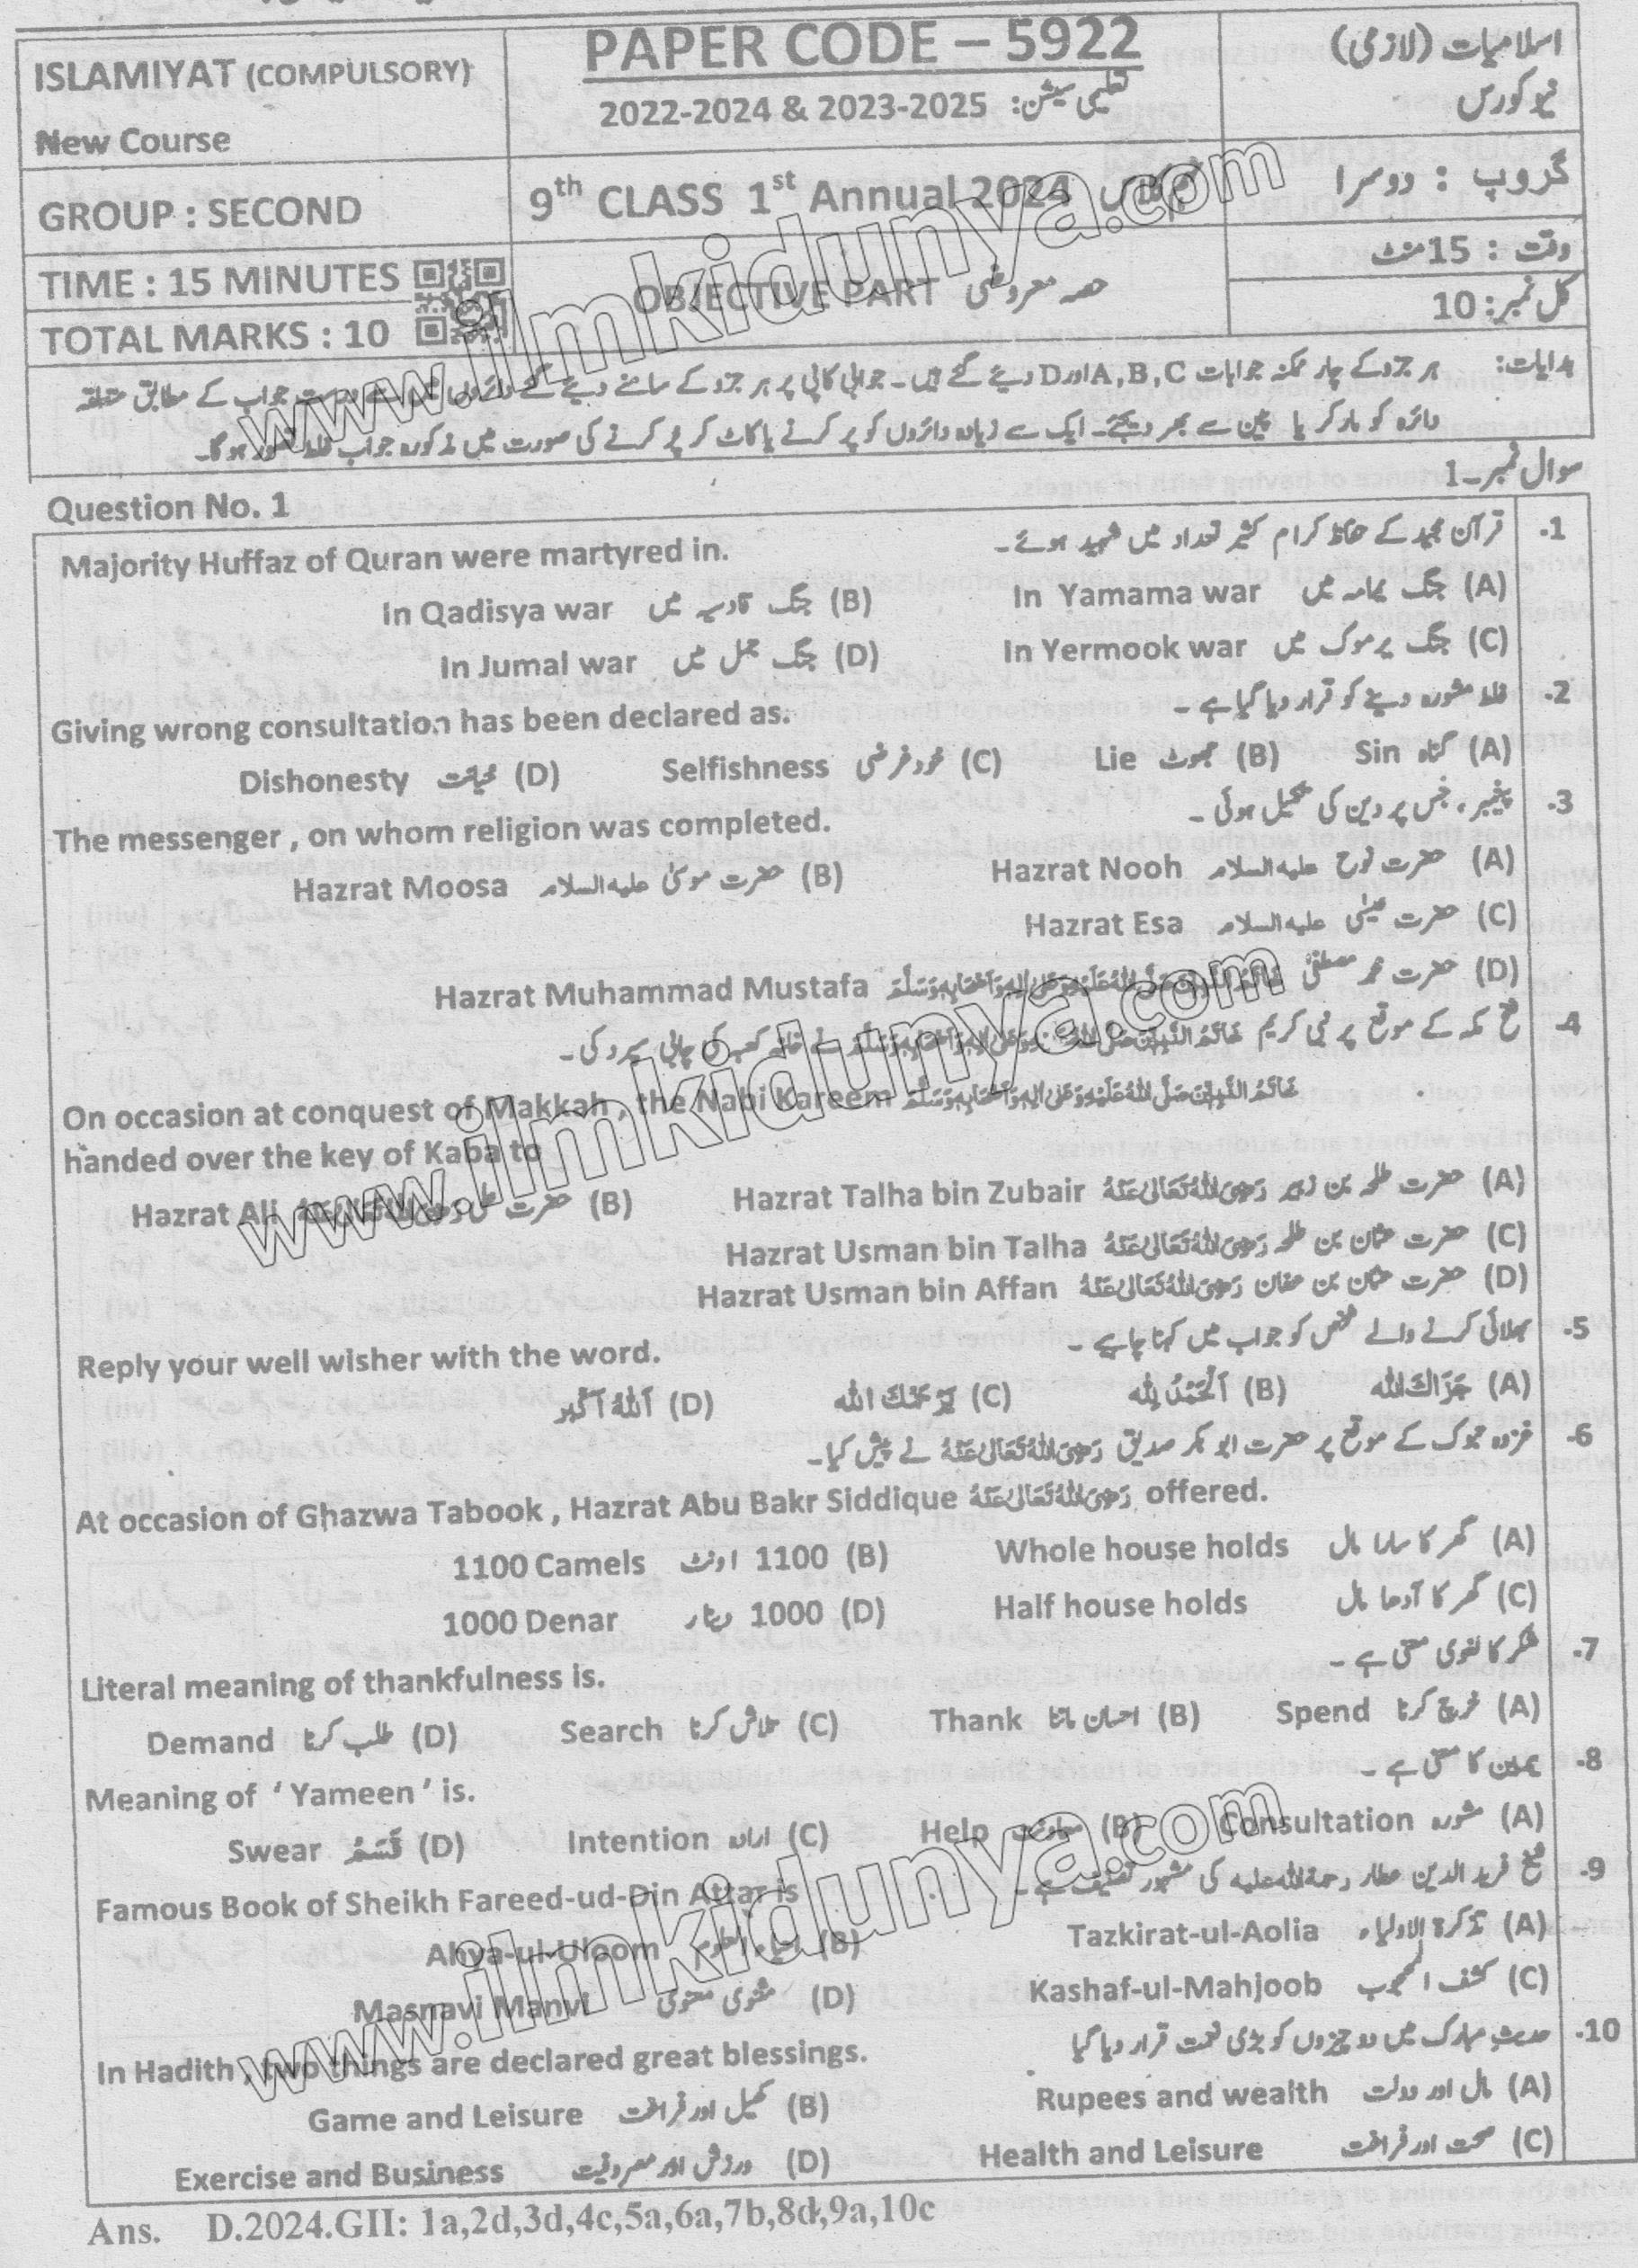 ISLAMIYAT (COMPULSORY)
New Course
PAPER CODE – 5922
2022-2024 & 2023-2025 تعلیمی سیشن:
اسلامیات (لازمی)
نیو کورس
GROUP : SECOND
9th CLASS 1st Annual 2024
گروپ : دوسرا
TIME : 15 MINUTES
TOTAL MARKS : 10
OBJECTIVE PART حصہ معروضی
وقت : 15 منٹ
کل نمبر: 10
ہدایات: ہر جزو کے چار ممکنہ جوابات A,B,C اور D دیئے گئے ہیں۔ جوابی کاپی پر ہر جزو کے سامنے دیئے گئے درست جواب کے مطابق متعلقہ
دائرہ کو مارکر یا پین سے بھر دیجئے۔ ایک سے زیادہ دائروں کو پر کرنے یا کاٹ کر پر کرنے کی صورت میں مذکورہ جواب غلط تصور ہوگا۔
Question No. 1 سوال نمبر-1
1- قرآن مجید کے حفاظ کرام کثیر تعداد میں شہید ہوئے۔
Majority Huffaz of Quran were martyred in.
(A) جنگ یمامہ میں In Yamama war (B) جنگ قادسیہ میں In Qadisya war
(C) جنگ یرموک میں In Yermook war (D) جنگ جمل میں In Jumal war
2- غلط مشورہ دینے کو قرار دیا گیا ہے۔
Giving wrong consultation has been declared as.
(A) گناہ Sin (B) جھوٹ Lie (C) خود غرضی Selfishness (D) خیانت Dishonesty
3- پیغمبر، جس پر دین کی تکمیل ہوئی۔
The messenger , on whom religion was completed.
(A) حضرت نوح علیہ السلام Hazrat Nooh (B) حضرت موسیٰ علیہ السلام Hazrat Moosa
(C) حضرت عیسٰی علیہ السلام Hazrat Esa
(D) حضرت محمد مصطفیٰ خَاتَمُ النَّبِیّٖنَ صَلَّی اللہُ عَلَیْہِ وَعَلٰی اٰلِہٖ وَاَصْحَابِہٖ وَسَلَّمَ Hazrat Muhammad Mustafa
4- فتح مکہ کے موقع پر نبی کریم خَاتَمُ النَّبِیّٖنَ صَلَّی اللہُ عَلَیْہِ وَعَلٰی اٰلِہٖ وَاَصْحَابِہٖ وَسَلَّمَ نے خانہ کعبہ کی چابی سپرد کی۔
On occasion at conquest of Makkah , the Nabi Kareem خَاتَمُ النَّبِیّٖنَ صَلَّی اللہُ عَلَیْہِ وَعَلٰی اٰلِہٖ وَاَصْحَابِہٖ وَسَلَّمَ
handed over the key of Kaba to
(A) حضرت طلحہ بن زبیر رَضِیَ اللہُ تَعَالٰی عَنْہُ Hazrat Talha bin Zubair (B) حضرت علی رَضِیَ اللہُ تَعَالٰی عَنْہُ Hazrat Ali
(C) حضرت عثمان بن طلحہ رَضِیَ اللہُ تَعَالٰی عَنْہُ Hazrat Usman bin Talha
(D) حضرت عثمان بن عفان رَضِیَ اللہُ تَعَالٰی عَنْہُ Hazrat Usman bin Affan
5- بھلائی کرنے والے شخص کو جواب میں کہنا چاہیے۔
Reply your well wisher with the word.
(A) جَزَاكَ اللہ (B) اَلْحَمْدُ لِلہ (C) یَرْحَمُكَ اللہ (D) اَللہُ اَکْبَر
6- غزوہ تبوک کے موقع پر حضرت ابو بکر صدیق رَضِیَ اللہُ تَعَالٰی عَنْہُ نے پیش کیا۔
At occasion of Ghazwa Tabook , Hazrat Abu Bakr Siddique رَضِیَ اللہُ تَعَالٰی عَنْہُ offered.
(A) گھر کا سارا مال Whole house holds (B) 1100 اونٹ 1100 Camels
(C) گھر کا آدھا مال Half house holds (D) 1000 دینار 1000 Denar
7- شکر کا لغوی معنی ہے۔
Literal meaning of thankfulness is.
(A) خرچ کرنا Spend (B) احسان ماننا Thank (C) تلاش کرنا Search (D) طلب کرنا Demand
8- یمین کا معنی ہے۔
Meaning of ‘ Yameen ’ is.
(A) مشورہ Consultation (B) معاونت Help (C) ارادہ Intention (D) قَسَمْ Swear
9- شیخ فرید الدین عطار رحمۃ اللہ علیہ کی مشہور تصنیف ہے۔
Famous Book of Sheikh Fareed-ud-Din Attar is
(A) تذکرۃ الاولیاء Tazkirat-ul-Aolia (B) احیاء العلوم Ahya-ul-Uloom
(C) کشف المحجوب Kashaf-ul-Mahjoob (D) مثنوی معنوی Masnavi Manvi
10- حدیث مبارک میں دو چیزوں کو بڑی نعمت قرار دیا گیا
In Hadith , two things are declared great blessings.
(A) مال اور دولت Rupees and wealth (B) کھیل اور فراغت Game and Leisure
(C) صحت اور فراغت Health and Leisure (D) ورزش اور مصروفیت Exercise and Business
Ans. D.2024.GII: 1a,2d,3d,4c,5a,6a,7b,8d,9a,10c
www.ilmkidunya.com
www.ilmkidunya.com
www.ilmkidunya.com